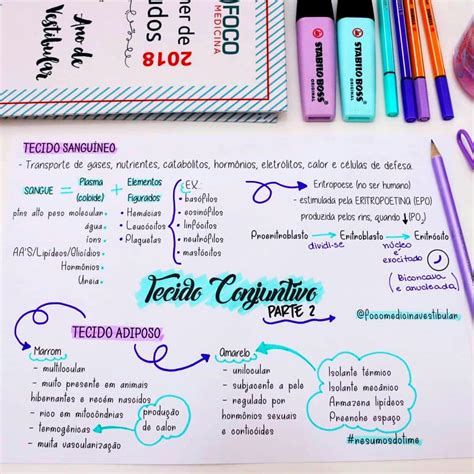 FOCO
MEDICINA
ner de
udos
2018
Ano de
Vestibular
STABILO BOSS
ORIGINAL
STABILO BOSS
ORIGINAL
TECIDO SANGUÍNEO
- Transporte de gases, nutrientes, catabólitos, hormônios, eletrólitos, calor e células de defesa
SANGUE = Plasma (coloide) + Elementos Figurados
ptns alto peso molecular
água
íons
AA'S/Lipídeos/Glicídios
Hormônios
Ureia
• Hemácias
• Leucócitos
• Plaquetas
EX.
• basófilos
• eosinófilos
• linfócitos
• neutrófilos
• mastócitos
Eritropoese (no ser humano)
- estimulada pela ERITROPOETINA (EPO)
produzida pelos rins, quando ↓(PO₂)
Proeritroblasto → Eritroblasto → Eritrócito
dividi-se
núcleo
é
exocitado
(Bicôncava
e anucleada)
Tecido Conjuntivo
PARTE 2
@focomedicinavestibular
TECIDO ADIPOSO
Marrom
- multilocular
- muito presente em animais
hibernantes e recém nascidos
- rico em mitocôndrias
- termogênicas
- muita vascularização
produção
de calor
Amarelo
- unilocular
- subjacente a pele
- regulado por
hormônios sexuais
e corticóides
Isolante térmico
Isolante mecânico
Armazena lipídeos
Preenche espaço
#resumosdotime